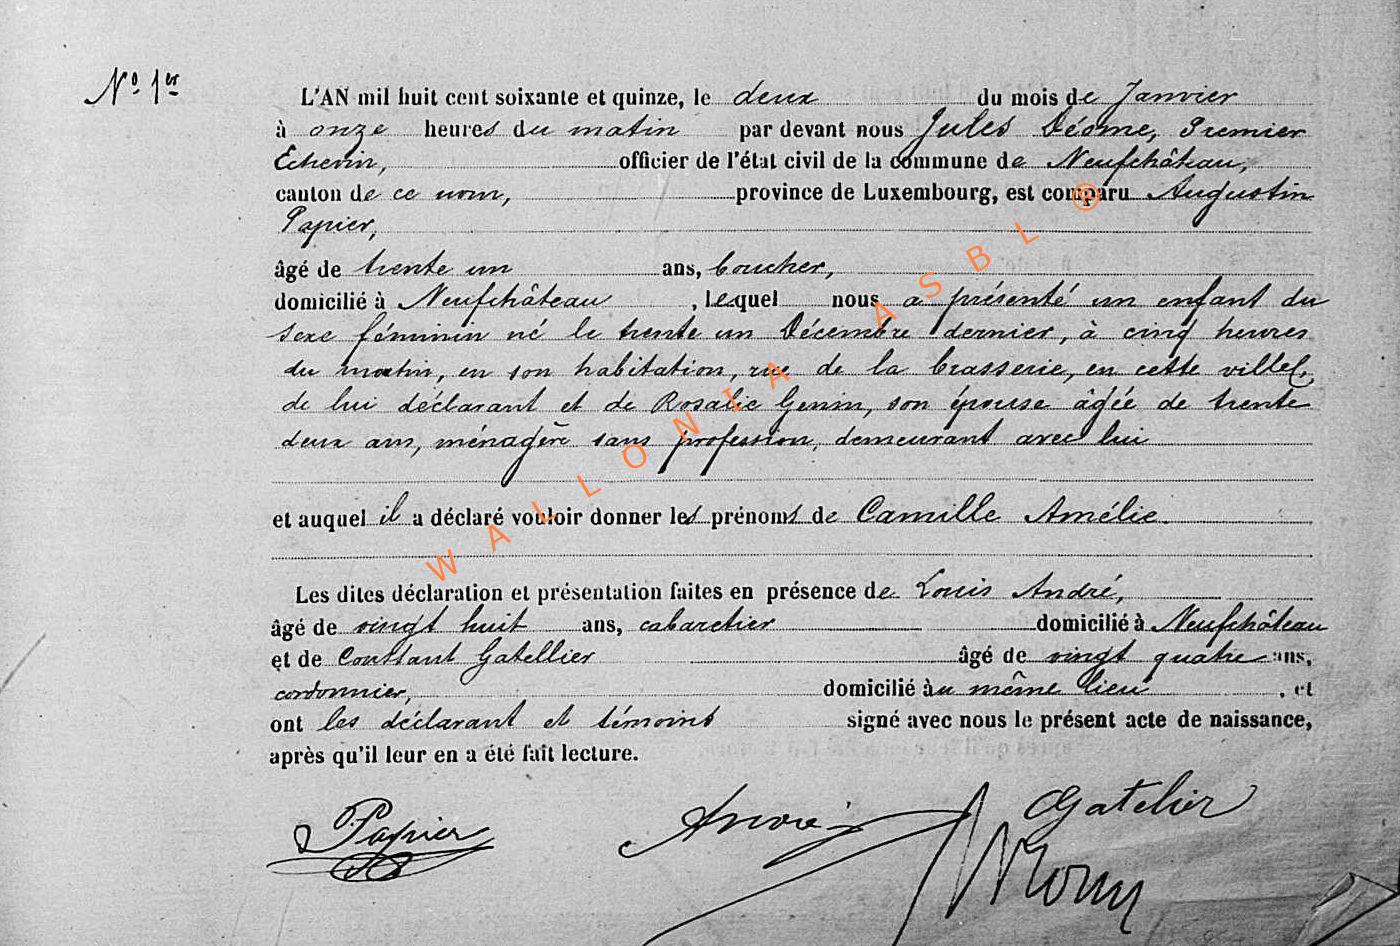 N° 1er
L'AN mil huit cent soixante et quinze, le deux du mois de Janvier
à onze heures du matin par devant nous Jules Déome, Premier
Echevin, officier de l'état civil de la commune de Neufchâteau,
canton de ce nom, province de Luxembourg, est comparu Augustin
Papier,
âgé de trente un ans, boucher,
domicilié à Neufchâteau , lequel nous a présenté un enfant du
sexe féminin né le trente un Décembre dernier, à cinq heures
du matin, en son habitation, rue de la brasserie, en cette ville,
de lui déclarant et de Rosalie Genin, son épouse âgée de trente
deux ans, ménagère sans profession, demeurant avec lui
et auquel il a déclaré vouloir donner les prénoms de Camille Amélie.
Les dites déclaration et présentation faites en présence de Louis André,
âgé de vingt huit ans, cabaretier domicilié à Neufchâteau
et de Constant Gatellier âgé de vingt quatre ans,
cordonnier, domicilié au même lieu , et
ont les déclarant et témoins signé avec nous le présent acte de naissance,
après qu'il leur en a été fait lecture.
Papier André Gatelier
WALLONIA ASBL ®